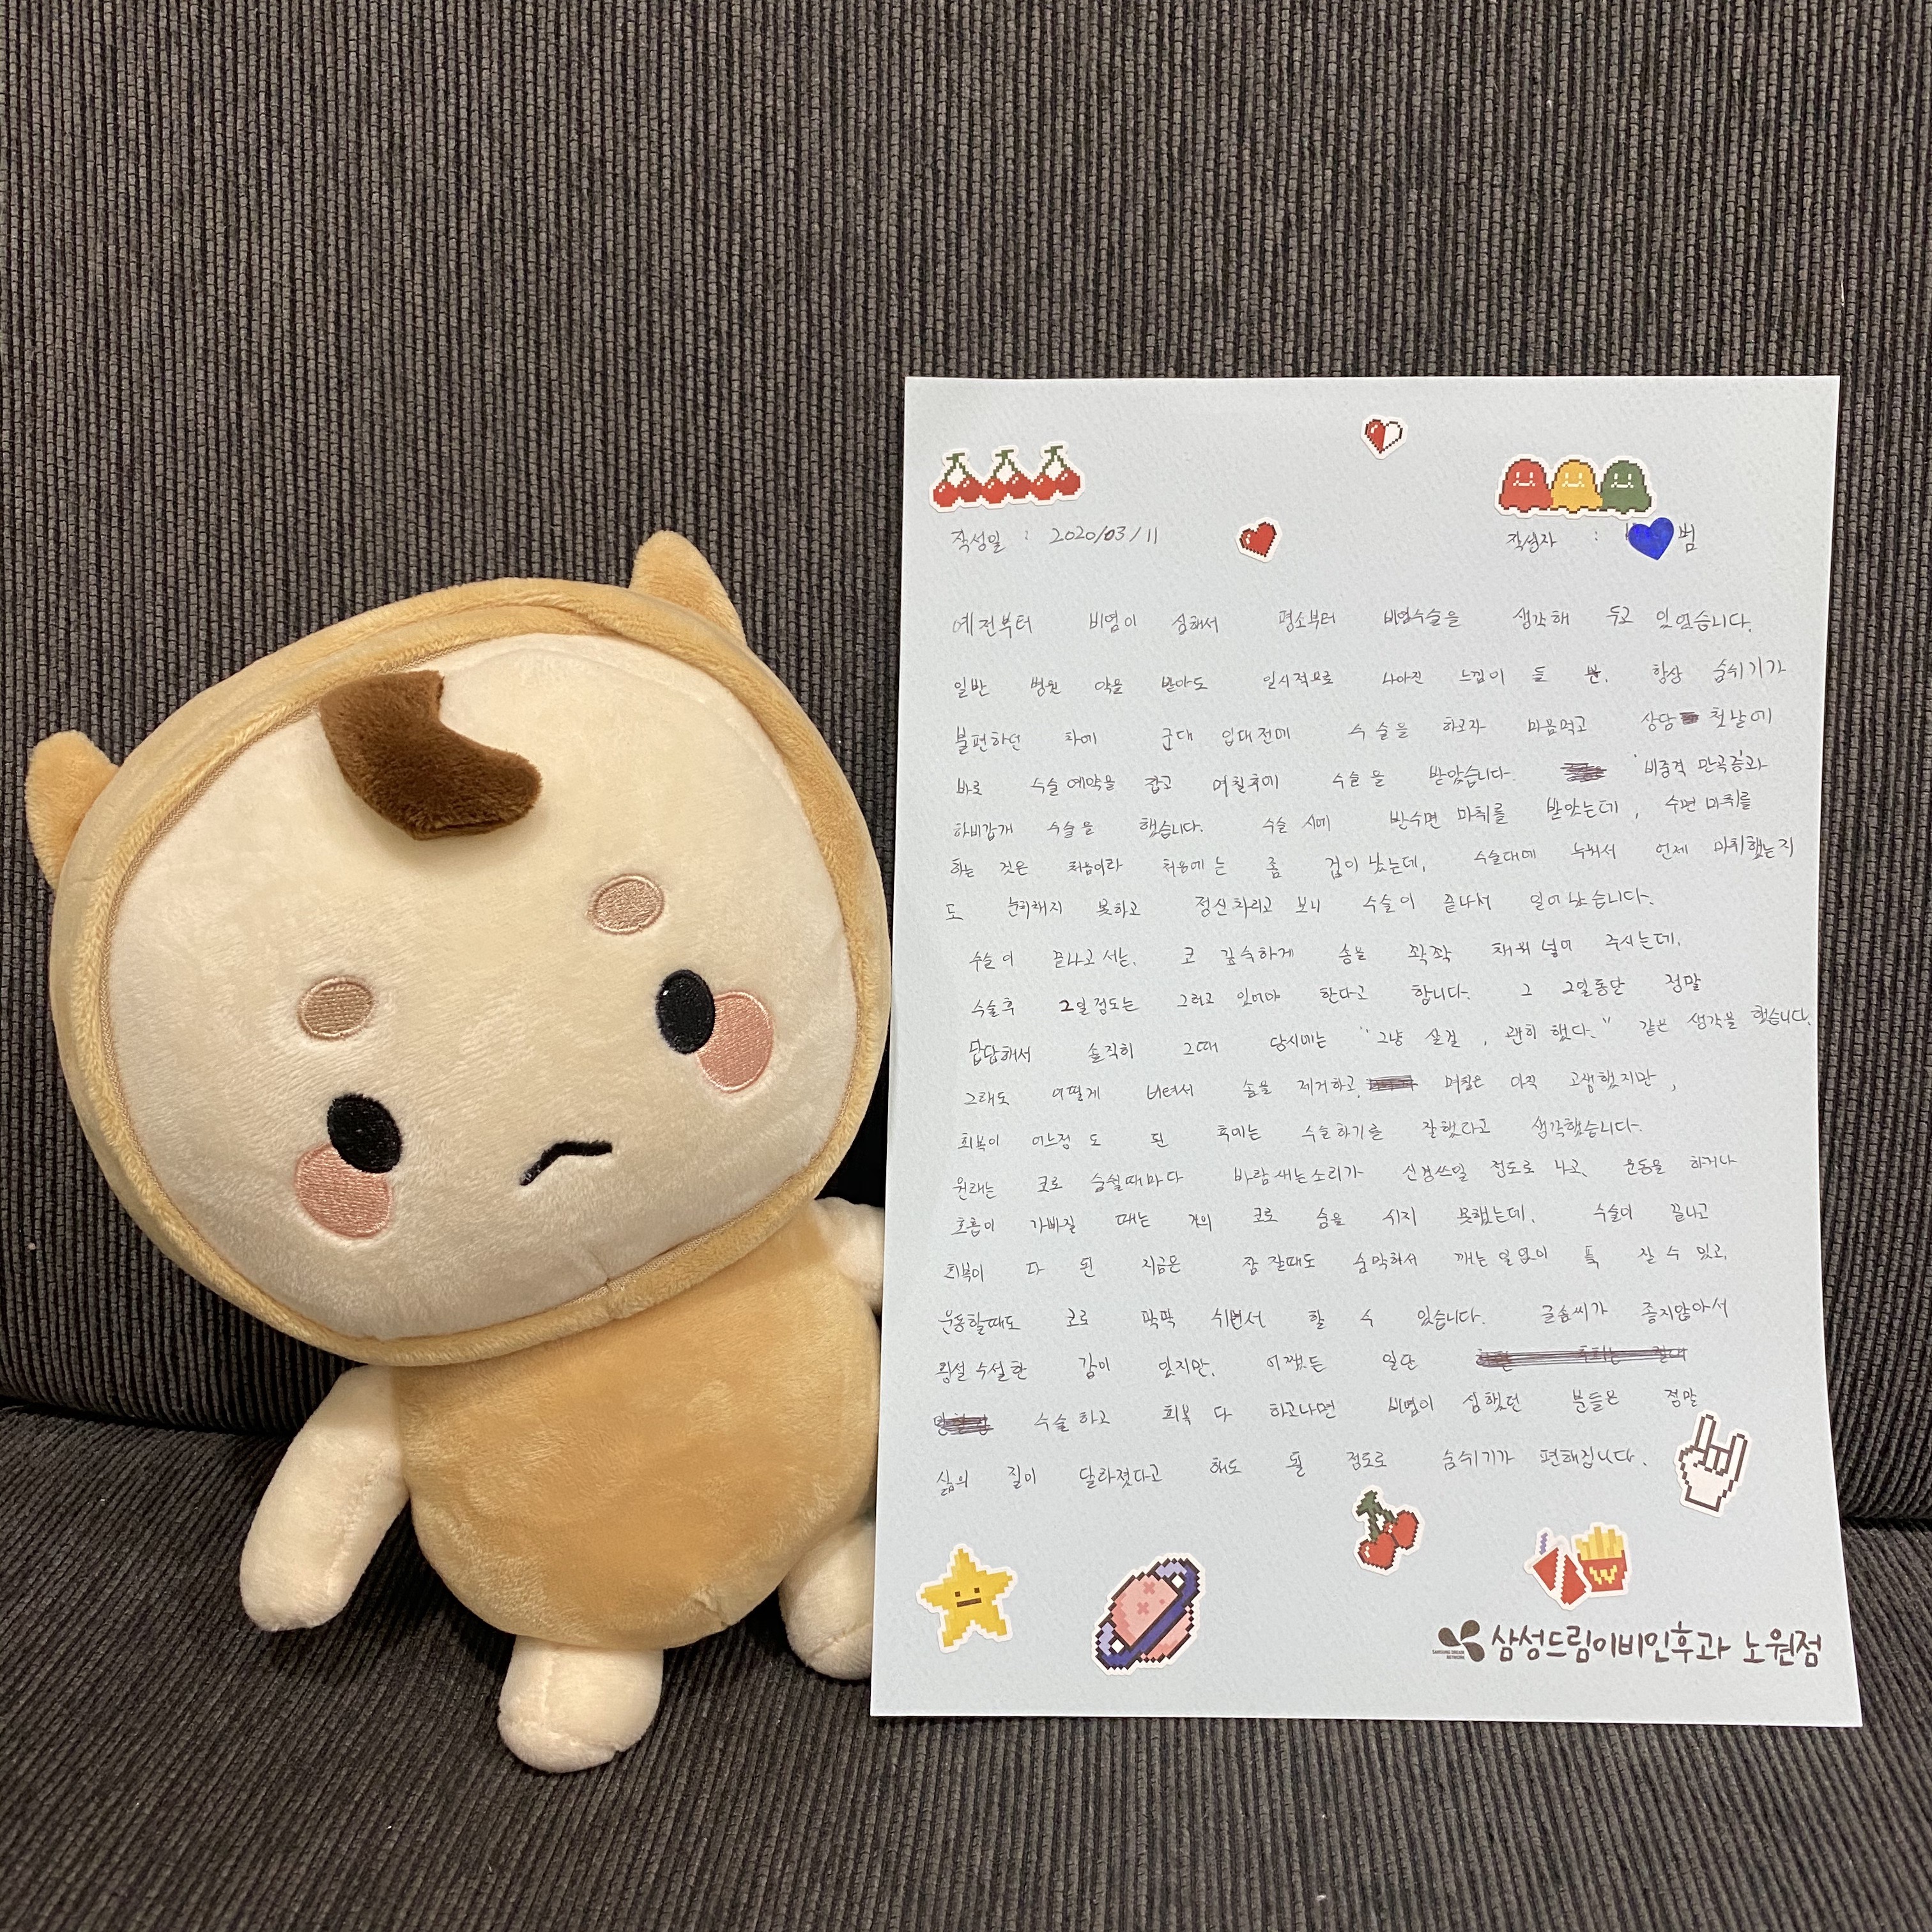 작성일 : 2020/03/11
작성자 : 범
예전부터 비염이 심해서 평소부터 비염수술을 생각해 두고 있었습니다.
일반 병원 약을 받아도 일시적으로 나아진 느낌이 들 뿐, 항상 숨쉬기가
불편하던 차에 군대 입대전에 수술을 하고자 마음먹고 상담 첫날에
바로 수술예약을 잡고 며칠후에 수술을 받았습니다. 비중격 만곡증과
하비갑개 수술을 했습니다. 수술 시에 반수면 마취를 받았는데, 수면 마취를
하는 것은 처음이라 처음에는 좀 겁이 났는데, 수술대에 누워서 언제 마취했는지
도 눈치채지 못하고 정신차리고 보니 수술이 끝나서 일어났습니다.
수술이 끝나고서는, 코 깊숙하게 솜을 꽉꽉 채워 넣어 주시는데,
수술후 2일정도는 그러고 있어야 한다고 합니다. 그 2일동안 정말
답답해서 솔직히 그때 당시에는 "그냥 살걸, 괜히 했다." 같은 생각을 했습니다.
그래도 어떻게 버텨서 솜을 제거하고, 며칠은 아직 고생했지만,
회복이 어느정도 된 후에는 수술하기를 잘했다고 생각했습니다.
원래는 코로 숨쉴때마다 바람새는소리가 신경쓰일 정도로 나고, 운동을 하거나
호흡이 가빠질 때는 거의 코로 숨을 쉬지 못했는데, 수술이 끝나고
회복이 다 된 지금은 잠 잘때도 숨막혀서 깨는 일 없이 푹 잘 수 있고,
운동할때도 코로 팍팍 쉬면서 할 수 있습니다. 글솜씨가 좋지않아서
횡설수설한 감이 있지만, 어쨌든 일단
수술하고 회복 다 하고나면 비염이 심했던 분들은 정말
삶의 질이 달라졌다고 해도 될 정도로 숨쉬기가 편해집니다.
삼성드림이비인후과 노원점